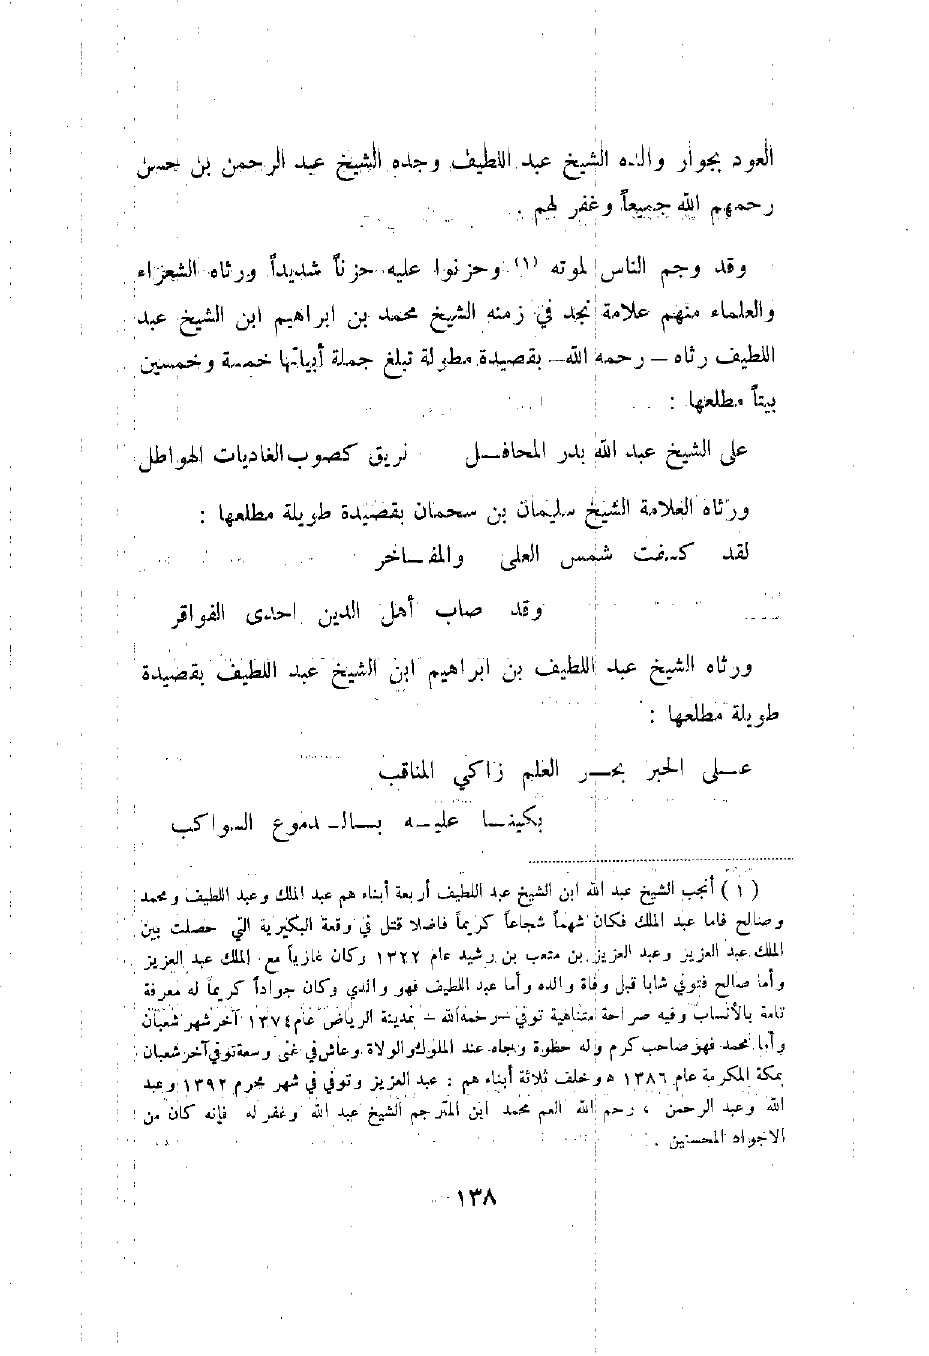 العود بجوار والده الشيخ عبد اللطيف وجده الشيخ عبد الرحمن بن حسن
رحمهم الله جميعاً وغفر لهم .
وقد وجم الناس لموته (١) وحزنوا عليه حزناً شديداً ورثاه الشعراء
والعلماء منهم علامة نجد في زمنه الشيخ محمد بن ابراهيم ابن الشيخ عبد
اللطيف رثاه – رحمه الله – بقصيدة مطولة تبلغ جملة أبياتها خمسة وخمسين
بيتاً مطلعها :
على الشيخ عبد الله بدر المحافــل نريق كصوب الغاديات الهواطل
ورثاه العلامة الشيخ سليمان بن سحمان بقصيدة طويلة مطلعها :
لقد كسفت شمس العلى والمفــاخر
وقد صاب أهل الدين احدى الفواقر
ورثاه الشيخ عبد اللطيف بن ابراهيم ابن الشيخ عبد اللطيف بقصيدة
طويلة مطلعها :
عــلى الحبر بحــر العلم زاكي المناقب
بكينــا عليــه بالــدموع السواكب
(١) أنجب الشيخ عبد الله ابن الشيخ عبد اللطيف أربعة أبناء هم عبد الملك وعبد اللطيف ومحمد
وصالح فاما عبد الملك فكان شهماً شجاعاً كريماً فاضلا قتل في وقعة البكيرية التي حصلت بين
الملك عبد العزيز وعبد العزيز بن متعب بن رشيد عام ١٣٢٢ وكان غازياً مع الملك عبد العزيز
وأما صالح فتوفي شابا قبل وفاة والده وأما عبد اللطيف فهو والدي وكان جواداً كريماً له معرفة
تامة بالأنساب وفيه صراحة متناهية توفي – رحمه الله – بمدينة الرياض عام ١٣٧٤ آخر شهر شعبان
وأما محمد فهو صاحب كرم وله حظوة وبجاه عند الملوك والولاة وعاش في غنى وسعة توفي آخر شعبان
بمكة المكرمة عام ١٣٨٦ ه وخلف ثلاثة أبناء هم : عبد العزيز وتوفي في شهر محرم ١٣٩٢ وعبد
الله وعبد الرحمن ، رحم الله العم محمد ابن المترجم الشيخ عبد الله وغفر له فإنه كان من
الاجواد المحسنين .
١٣٨